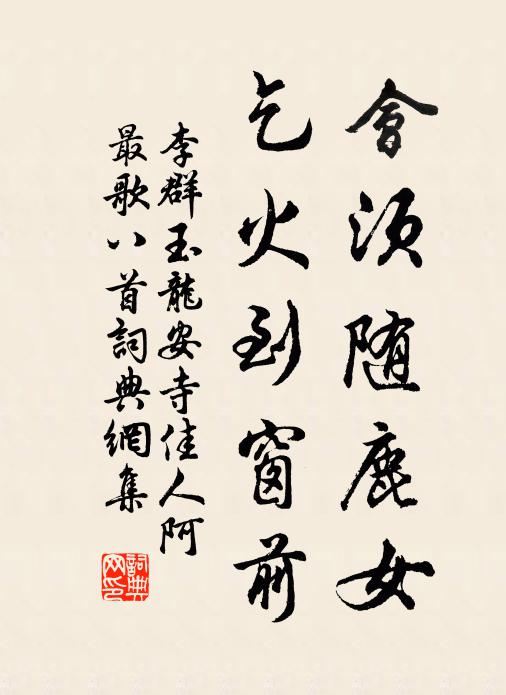 會須随鹿女
乞火到窗前
李群玉龍安寺佳人阿
最歌八首詞典網集
詞典网印